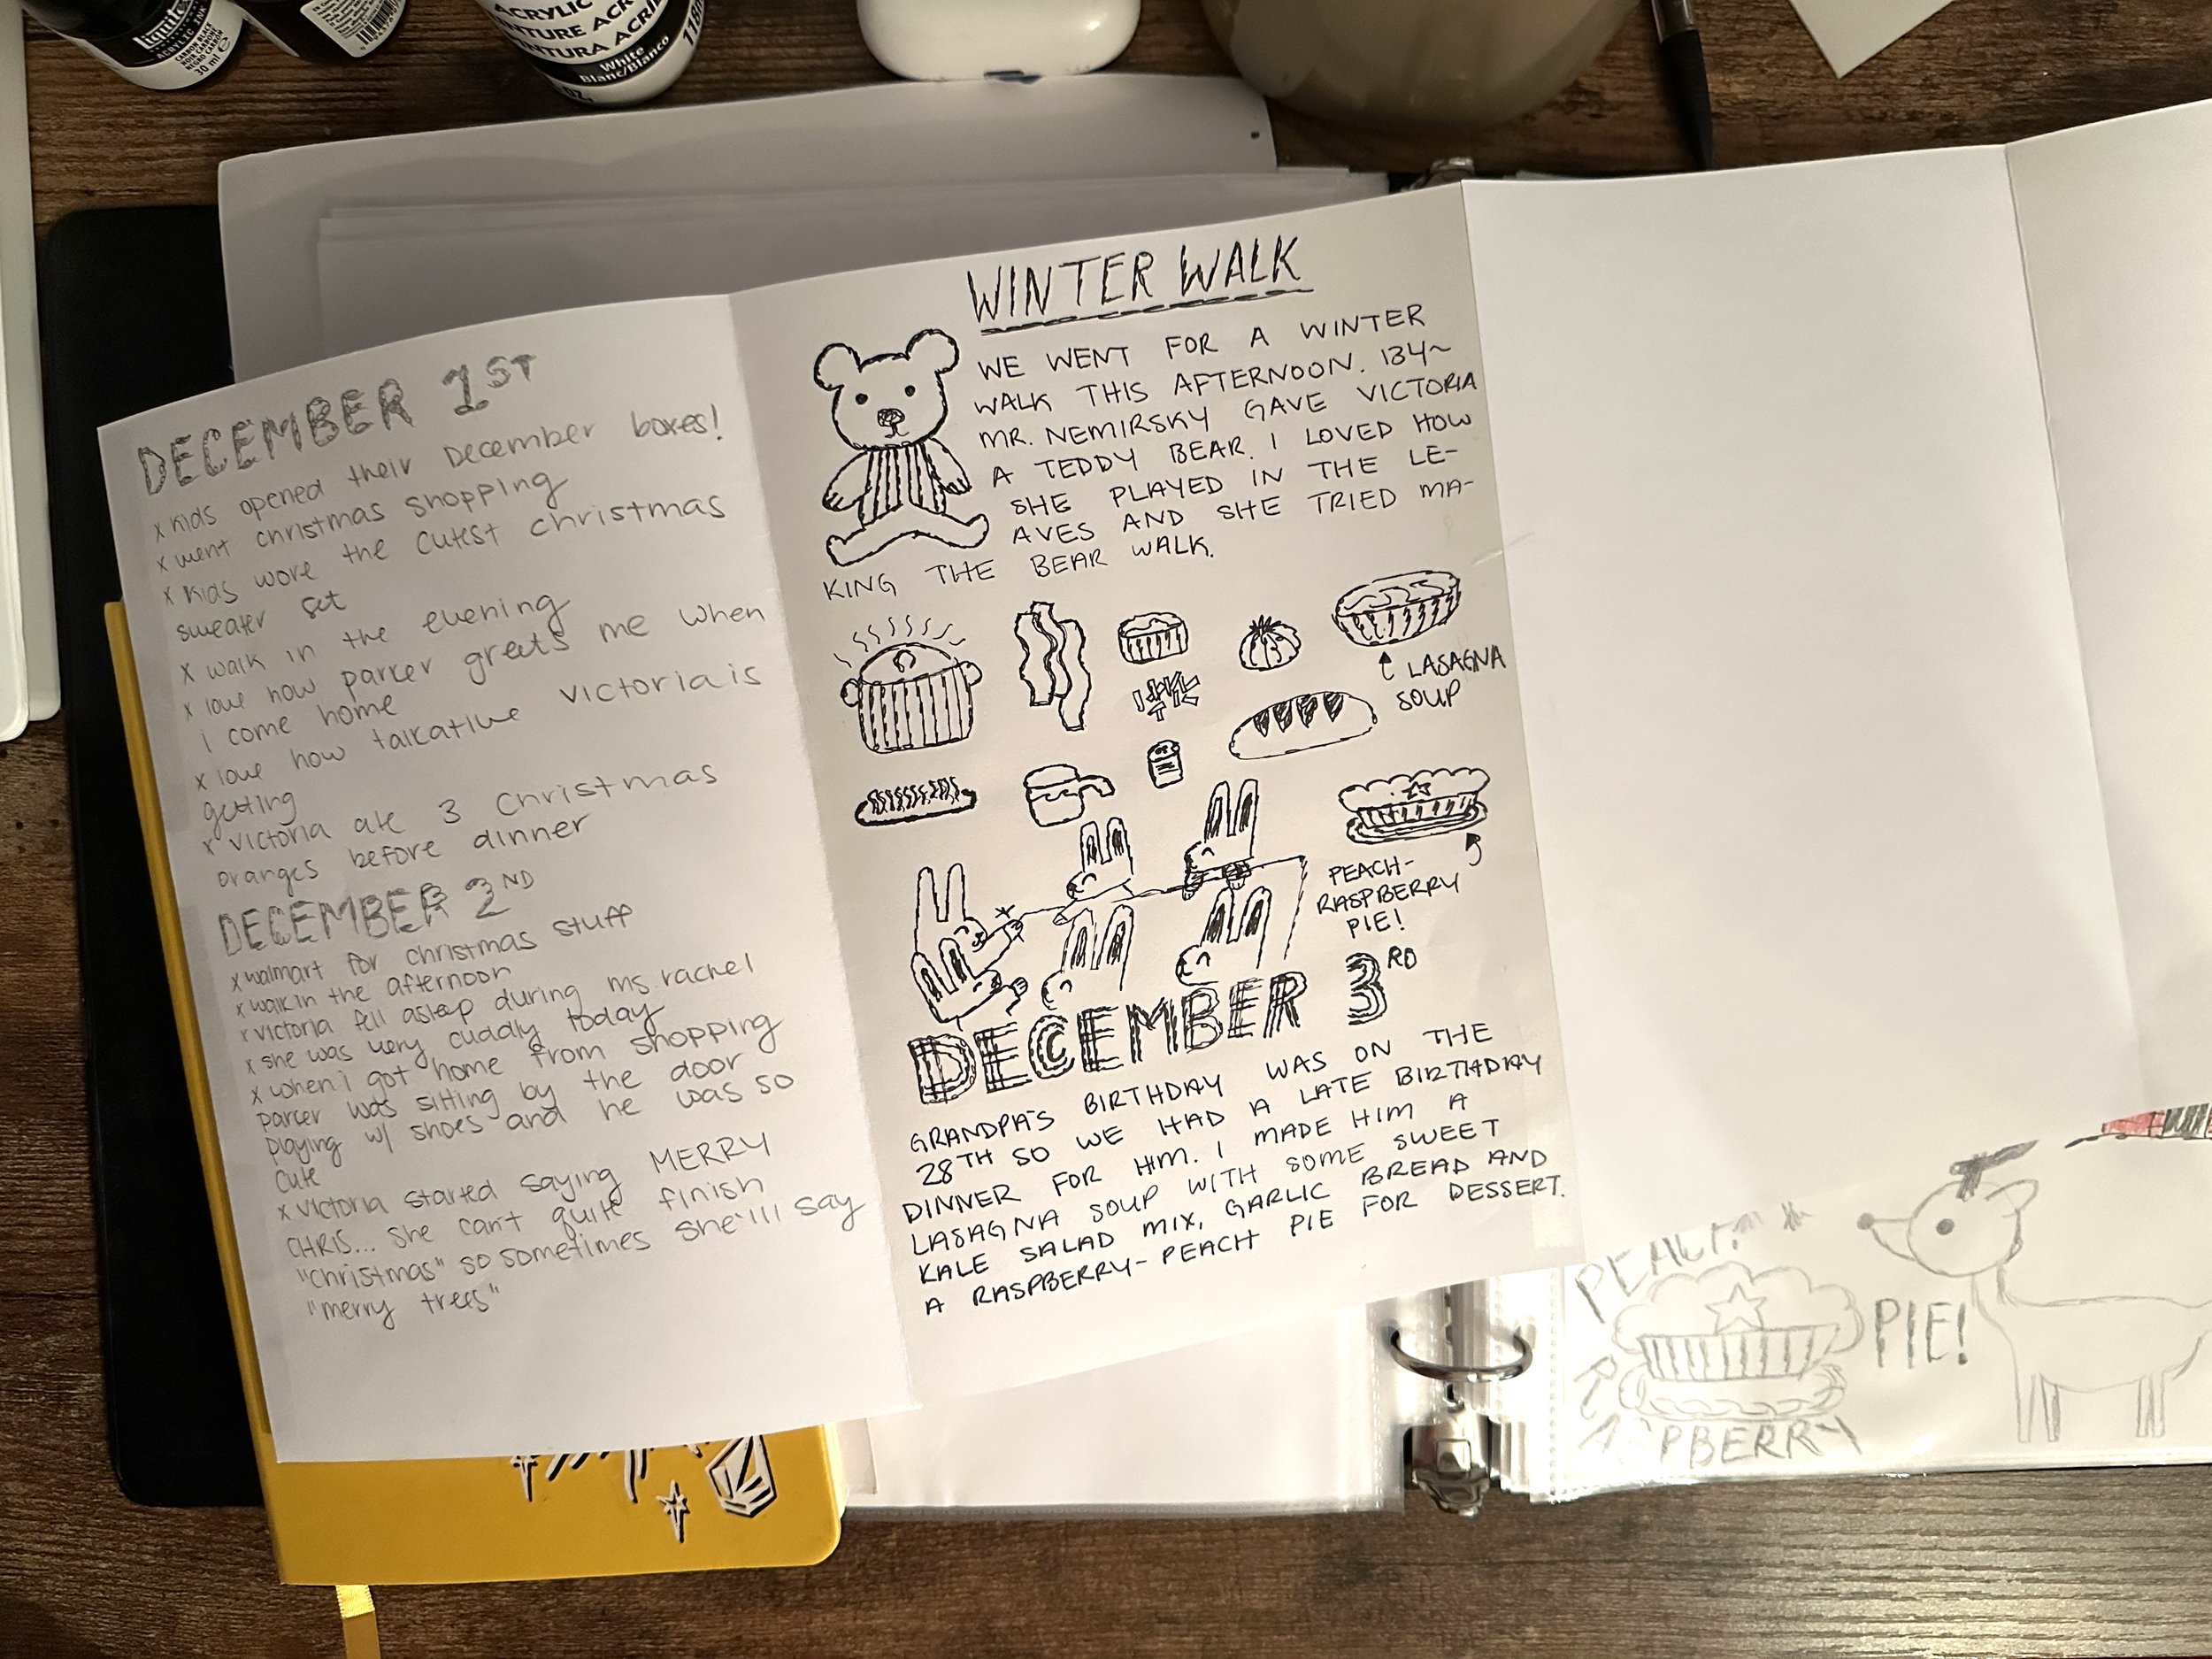 Liquitex
ACRYLIC INK
CARBON BLACK
NEGRO CARBON
30 ml
ACRYLIC
PEINTURE ACR
PINTURA ACRÍ
White
Blanc/Blanco
118ml
OZ.
DECEMBER 1ST
x kids opened their December boxes!
x went christmas shopping
x kids wore the cutest christmas
sweater set
x walk in the evening
x love how parker greets me when
i come home
x love how talkative victoria is
getting
x victoria ate 3 christmas
oranges before dinner
DECEMBER 2ND
x walmart for christmas stuff
x walk in the afternoon
x victoria fell asleep during ms rachel
x she was very cuddly today
x when i got home from shopping
parker was sitting by the door
playing w/ shoes and he was so
cute
x victoria started saying MERRY
CHRIS... she can't quite finish
"christmas" so sometimes she'lll say
"merry trees"
WINTER WALK
WE WENT FOR A WINTER
WALK THIS AFTERNOON. 134~
MR. NEMIRSKY GAVE VICTORIA
A TEDDY BEAR. I LOVED HOW
SHE PLAYED IN THE LE-
AVES AND SHE TRIED MA-
KING THE BEAR WALK.
LASAGNA
SOUP
PEACH-
RASPBERRY
PIE!
DECEMBER 3RD
GRANDPA'S BIRTHDAY WAS ON THE
28TH SO WE HAD A LATE BIRTHDAY
DINNER FOR HIM. I MADE HIM A
LASAGNA SOUP WITH SOME SWEET
KALE SALAD MIX, GARLIC BREAD AND
A RASPBERRY-PEACH PIE FOR DESSERT.
PIE!